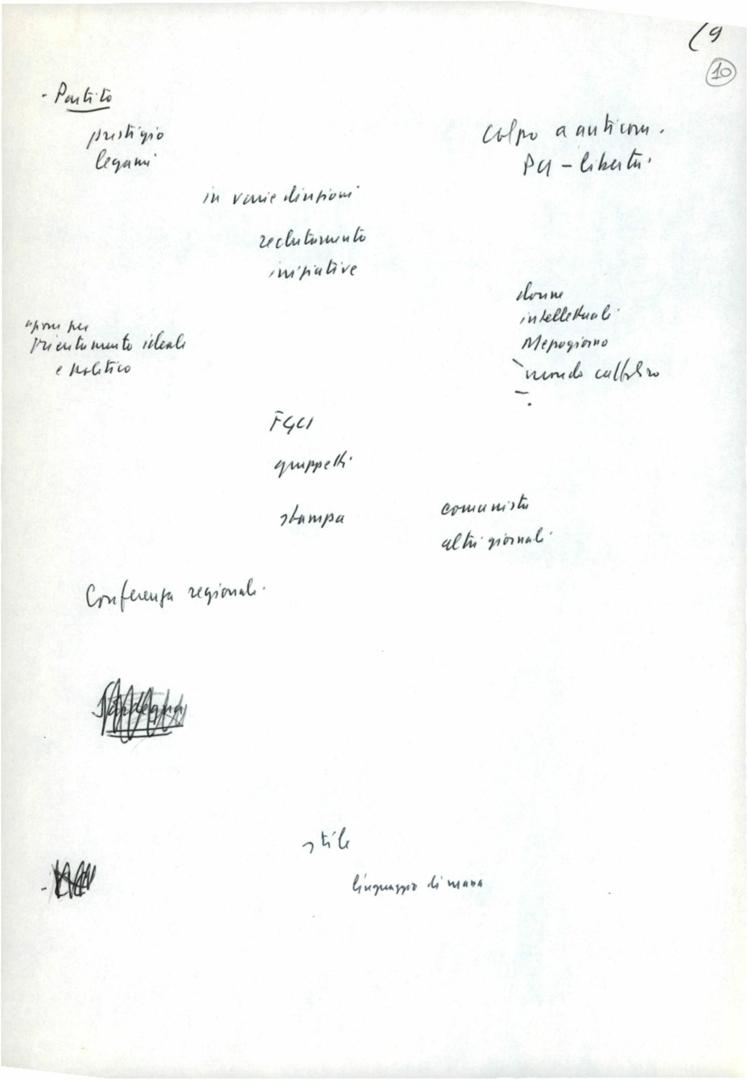 (9
10
- Partito
prestigio
legami
colpo a anticom.
PCI - libertà
in varie direzioni
reclutamento
iniziative
azione per
orientamento ideale
e politico
donne
intellettuali
Mezzogiorno
mondo cattolico
FGCI
gruppetti
stampa
comunista
altri giornali
Conferenza regionale.
stile
linguaggio di massa